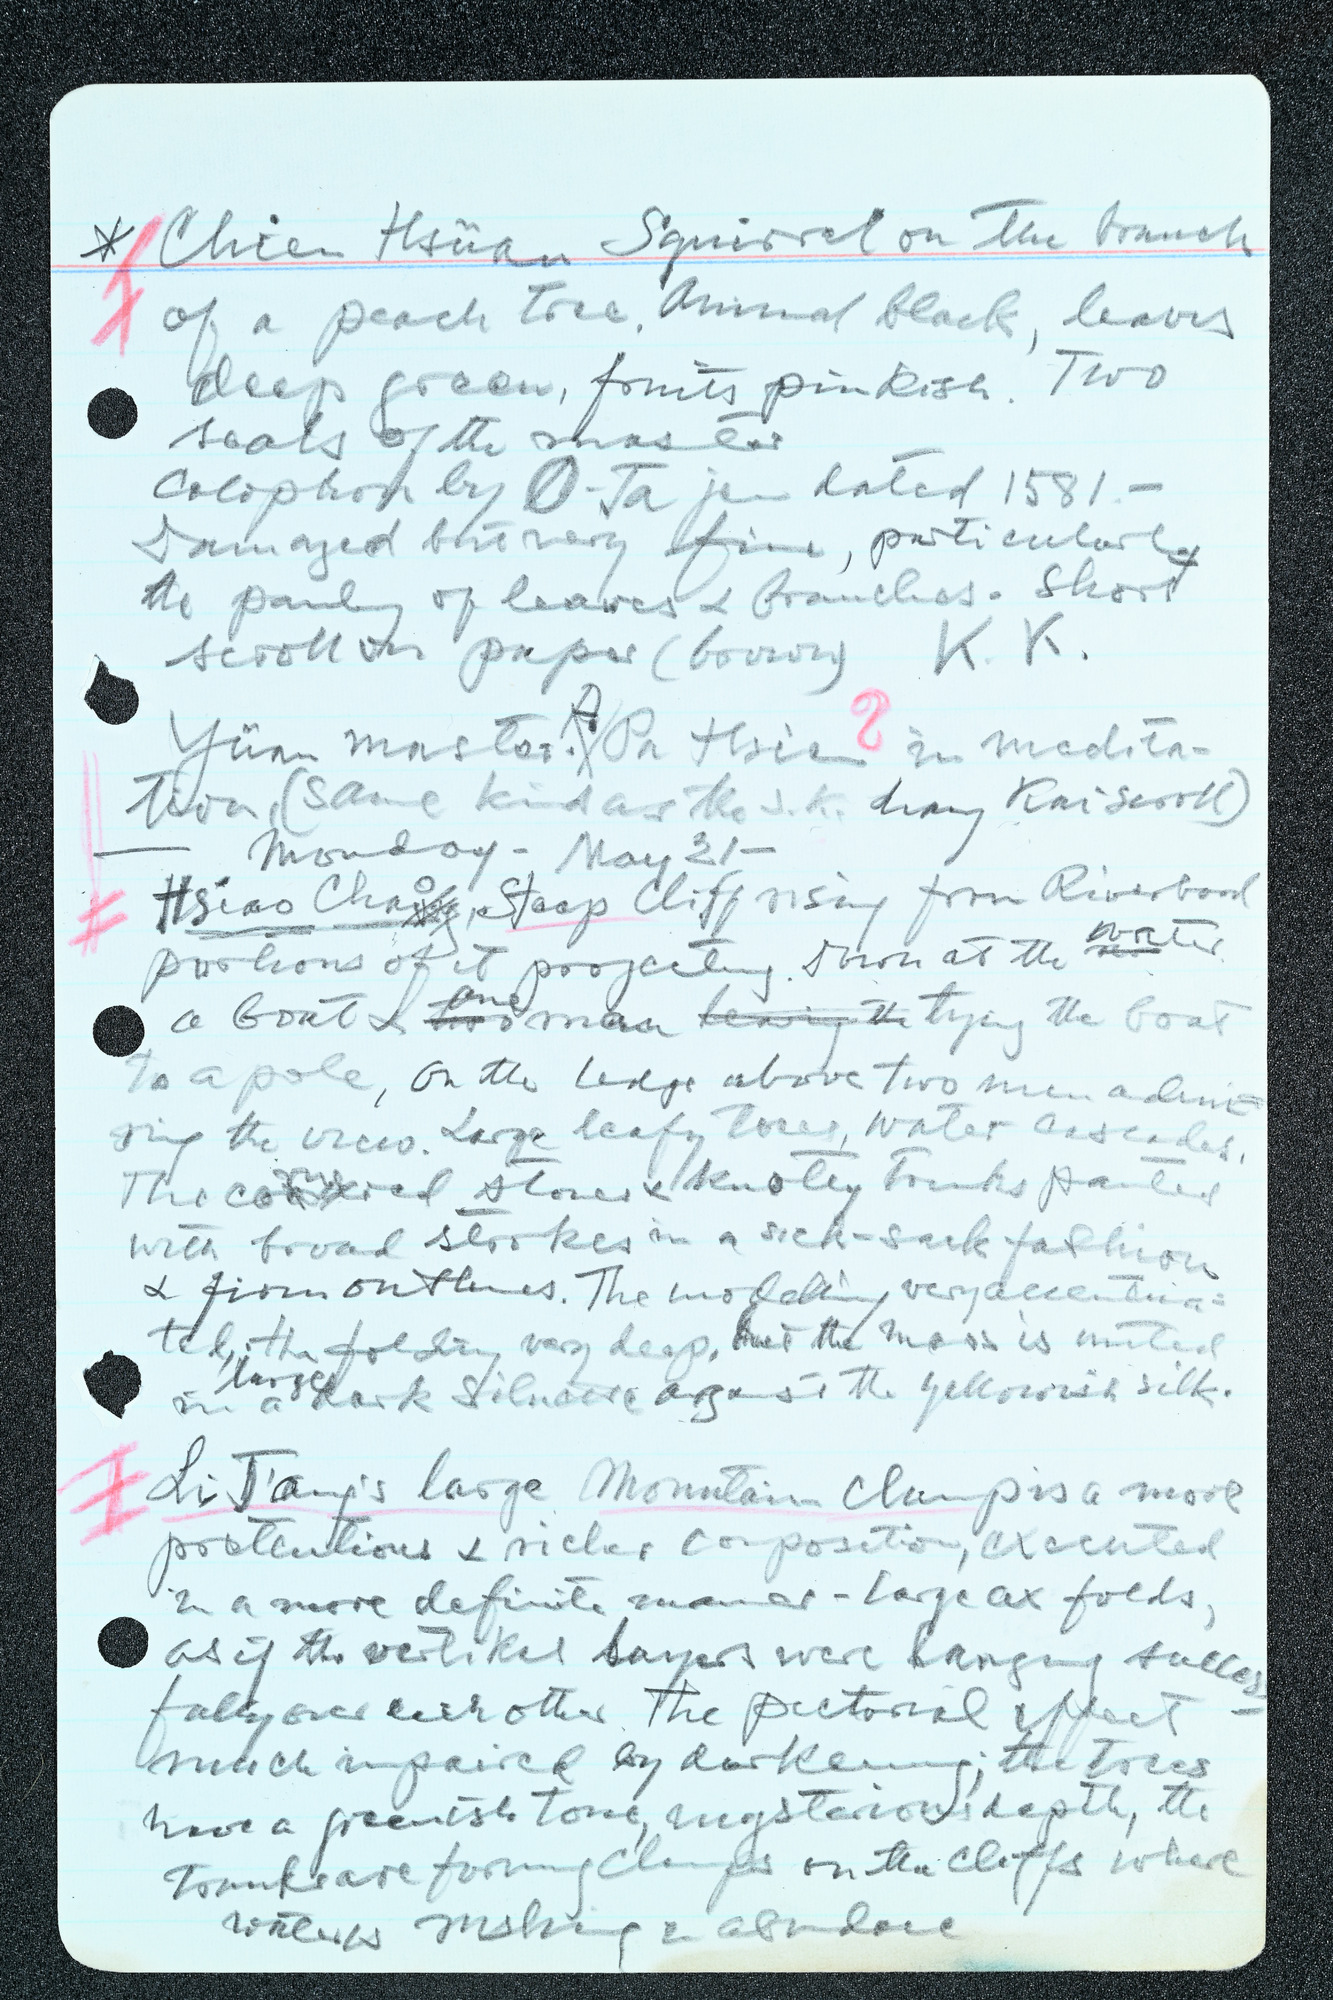 * Chien Hsüan Squirrel on the branch
of a peach tree. Animal black, leaves
deep green, fruits pinkish. Two
seals of the master
Colophon by O-Ta jen dated 1581.—
Damaged but very fine, particularly
the pantg of leaves & branches. Short
scroll on paper (brown) K. K.
Yüan master. A Pa Hsien ? in medita-
tion. (Same kind as the s.k. Kai scroll)
— Monday - May 21—
Hsiao Chao, Steep Cliff rising from Riverboard
portions of it projecting. Down at the water
a boat & one man trying the boat
to a pole, on the ledge above two men admi-
ring the view. Large leafy trees, water cascades.
The stones & knotty trunks painted
with broad strokes in a sick-sack fashion
& firm outlines. The modeling very accentua-
ted, the folding very deep, but the mass is united
in a large dark siluette against the yellowish silk.
Li T'ang's large Mountain Clump is a more
pretentious & richer composition, executed
in a more definite manner - large ax folds,
as if the vertikal layers were hanging succes-
fully over each other. The pictorial effect
much impaired by darkening; the trees
have a greenish tone, mysterious depth, the
trunks are forming clumps on the cliffs where
water is making abundace